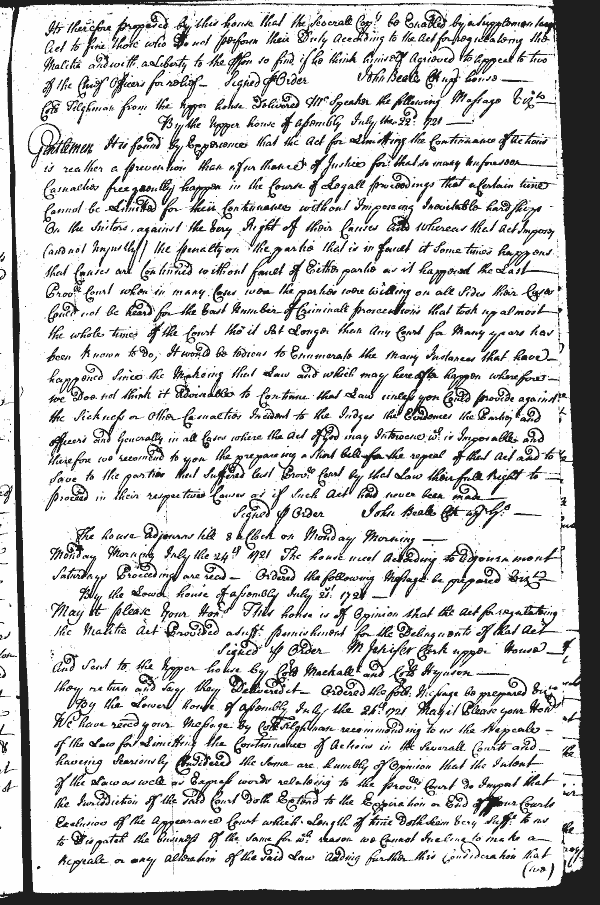 Its therefore proposed by this house that the Severall Cap.ts be Enabled by a Supplementary
Act to fine those who do not perform their Duty According to the Act for regulating the
Malitia and with a Liberty to the person so find if he think himself Agrieved to appeal to two
of the Chief Officers for relief Signed p Order John Beale Cl up: house
Coll Tilghman from the upper house Delivered Mr Speaker the following Message Viz.t
By the upper house of Assembly July the 22.d 1721
Gentlemen It is found by Experience that the Act for Limitting the Continuance of Actions
is reather a prevention than a furtherance of Justice for that so many unforeseen
Casualties frequently happen in the Course of Legall proceedings that a Certain time
Cannot be Limitted for their Continuance without Imposeing Inevitable hardships
On the Suitors against the very Right of their Causes And whereas that Act Imposes
(and not unjustly) the penalty on the partie that is in fault it Some times happens
that Causes are Continued without fault of Either partie as it happened the Last
Prov.ll Court when in many Cases were the parties were willing on all Sides their Cases
Could not be heard for the Vast Number of Criminall prosecutions that took up almost
the whole time of the Court tho it Sat Longer than Any Court for Many years has
been known to do, It would be tedious to Enumerate the many Instances that have
happened Since the makeing that Law and which may hereafter happen wherefore
we Doe not think it Adviseable to Continue that Law unless you Could provide against
the Sickness or Other Casualties Incident to the Judges the Evidences the Parties and
Officers and Generally in all Cases where the Act of God may Intervene w.ch is Impossible and
therefore we recomend to you the prepareing a Short bill for the repeal of that Act and to
Save to the parties that Suffered last Prov.ll Court by that Law their full Right to
proceed in their respective Causes as if Such Act had never been made
Signed p Order John Beale Cl up Ho.
The house Adjourns till 8 a Clock on Monday Morning
Monday Morning July the 24.th 1721 The house meet According to Adjournment
Saturdays Proceedings are read Ordered the following Message be prepared Viz.t
By the Lower house of Assembly July 22. 1721
May it please Your Hon.rs This house is of Opinion that the Act for regulateing
the Malitia Act Provides a suff.t punishment for the Delinquents of that Act
Signed p Order M Jenifer Clerk upper House
And Sent to the upper house by Coll Mackall and Coll Hynson
they return and Say they Delivered it Ordered the foll. Message be prepared Viz
By the Lower house of Assembly July the 24.th 1721 May it Please your Hon.rs
We have rece'd your Message by Coll Tilghman recommending to us the Repeale
of the Law for Limitting the Continuance of Actions in the Severall Courts and
haveing Seariously Considered the Same are humbly of Opinion that the Intent
of the Law as well as Express words relateing to the prov.ll Court do Import that
the Jurisdiction of the said Court doth Extend to the Expiration or End of four Courts
Exclusive of the Appearance Court which Length of time doth seem very Suff.t to us
to Dispatch the business of the Same for w.ch reason we Cannot Incline to make a
Repeale or any Alteration of the Said Law Adding further this Consideration that
(we)